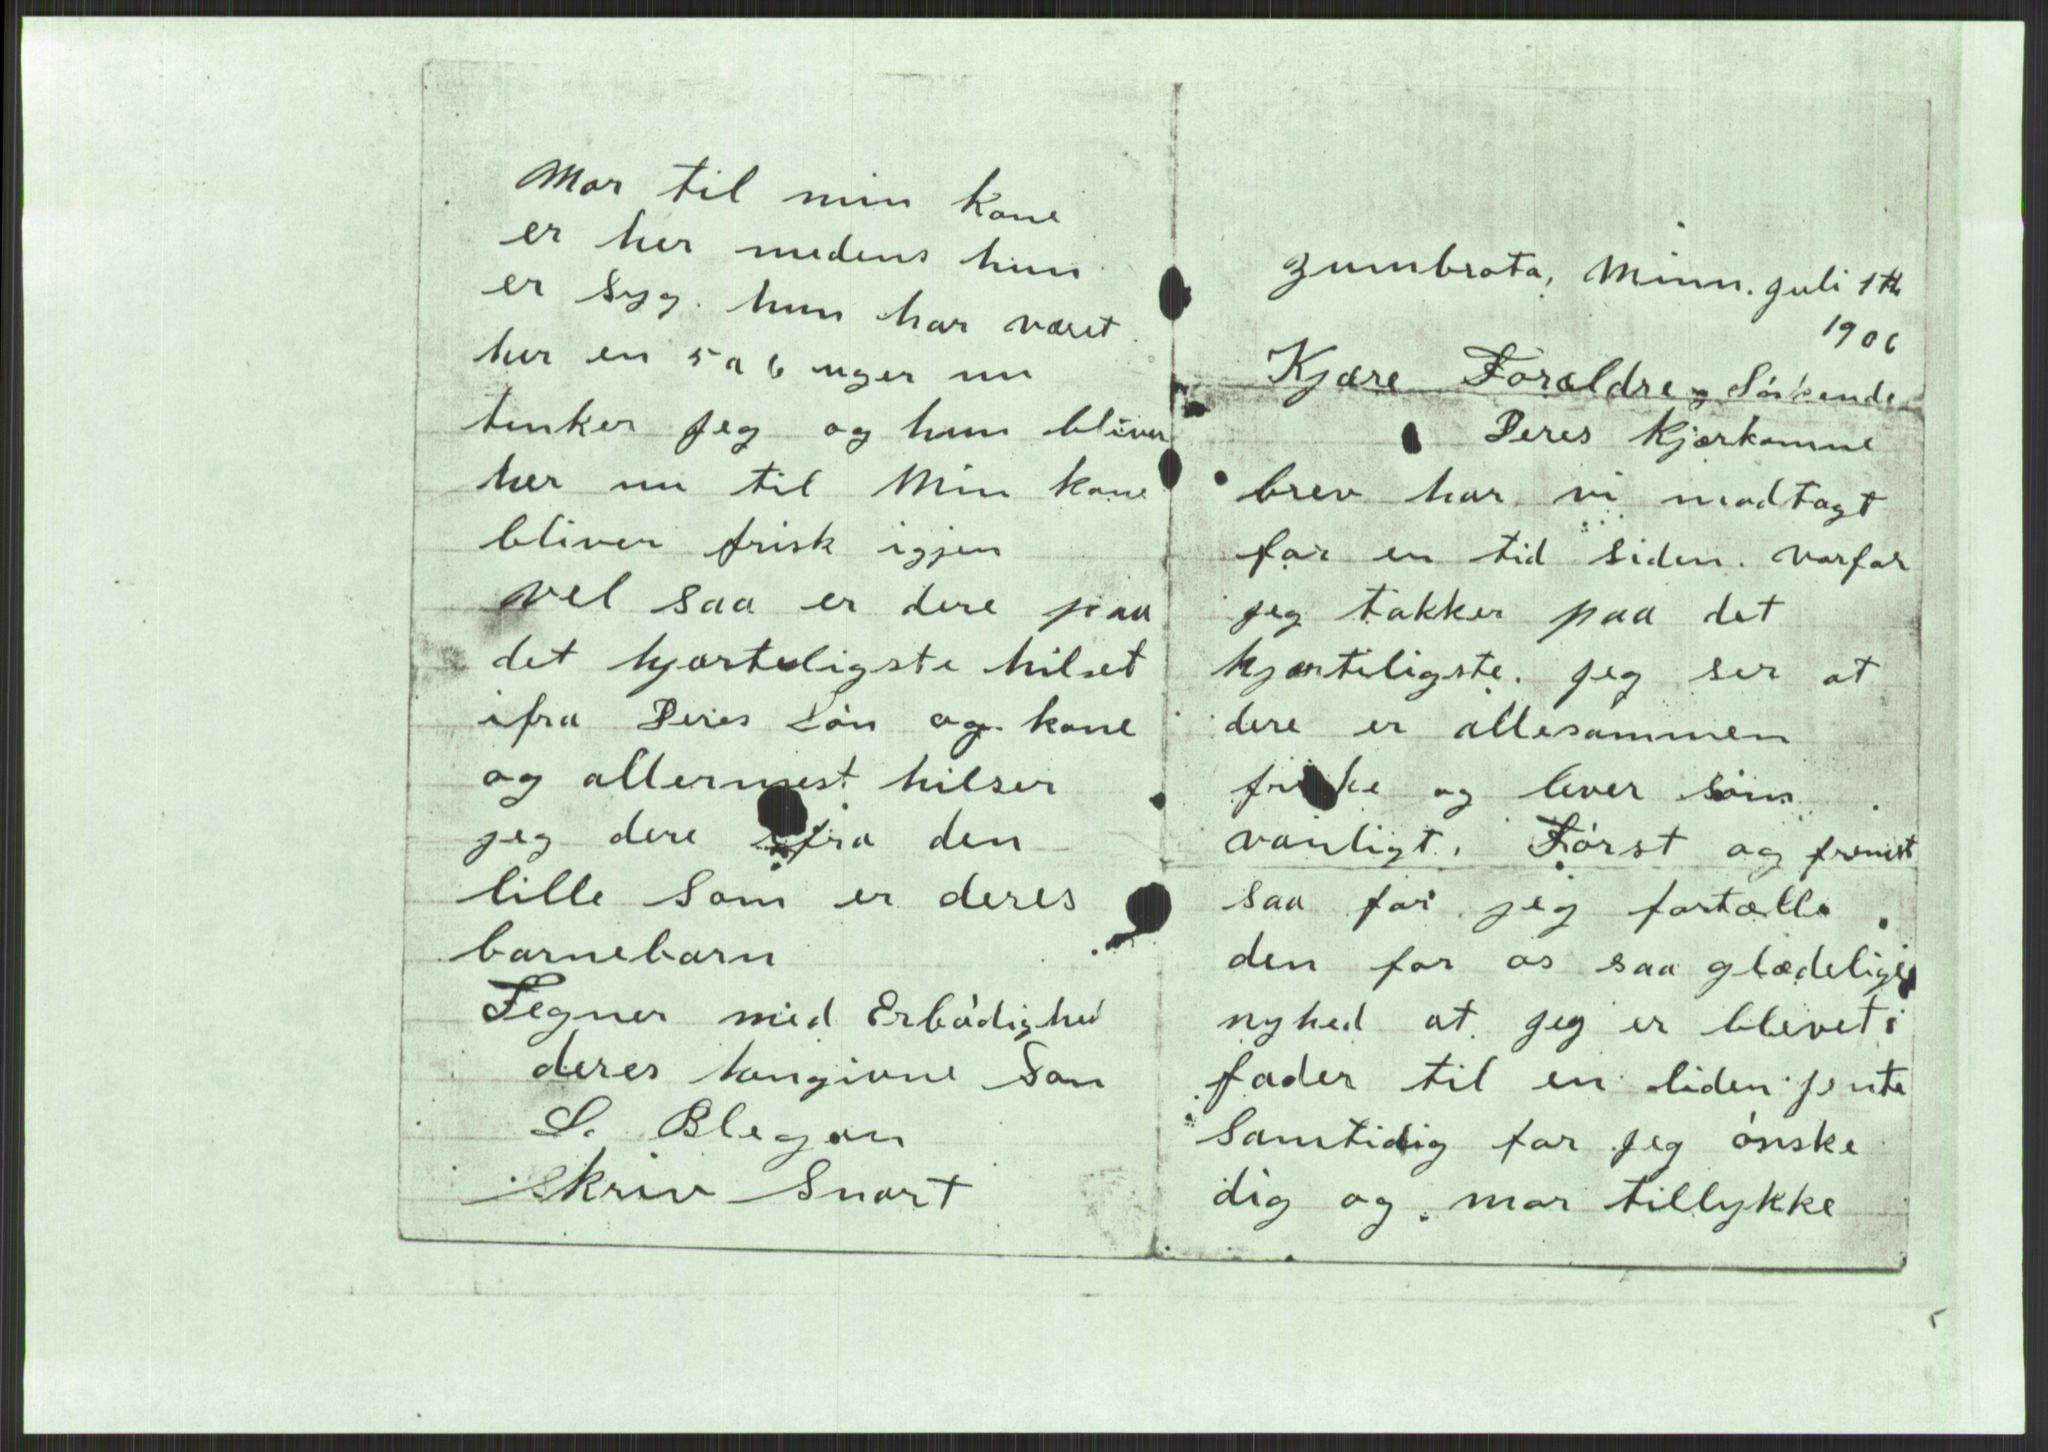 Mor til min kone
er her medens hun
er syg. hun har været
her en 5 a 6 uger nu
tenker jeg og hun bliver
her nu til Min kone
bliver frisk igjen
Vel saa er dere paa
det hjærteligste hilset
ifra Deres Sön og kone
og allermest hilser
jeg dere ifra den
lille som er deres
barnebarn
Tegner med Erbödighed
deres hengivne Son
S. Blegen
Skriv Snart
Zumbrota, Minn. Juli 1th
1906
Kjære Forældre og Söskende
Deres kjærkomne
brev har vi modtagt
for en tid siden. vorfor
jeg takker paa det
hjærteligste. Jeg ser at
dere er allesammen
friske og lever som
vanligt. Først og fremst
saa får jeg fortælle
den for os saa glædelige
nyhed at jeg er blevet
fader til en liden jente
Samtidig far jeg önske
dig og mor tillykke